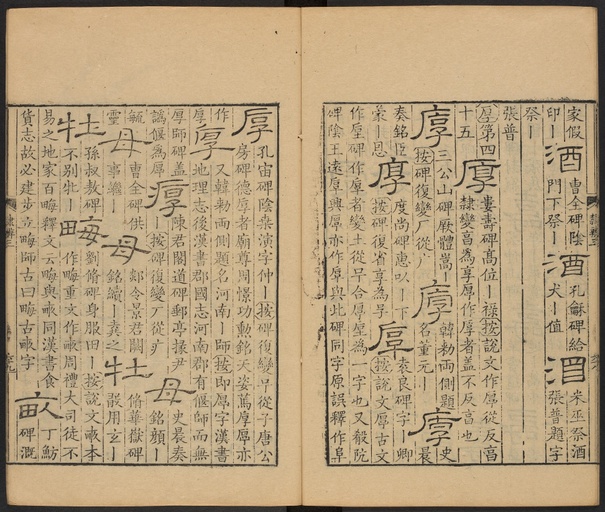 家假
酒
曹全碑陰
門下祭｜
酒
孔龢碑給
犬｜值
酒
米巫祭酒
張普題字
印｜
祭｜
張普
厚第四
十五
厚
婁壽碑高位｜祿按說文作厚從反亯
隸變亯為享厚作厚者蓋不反亯也
三公山碑厥體嵩｜
按碑復變厂從广
韓勑兩側題
名董元｜
史晨
奏銘臣
彖｜恩
度尚碑惠以｜下
按碑復省享為孚
袁良碑字｜卿
按說文厚古文
作垕碑變土從早合厚垕為一字也又殽阮
碑陰王遠厚與厚亦作厚與此碑同字原誤釋作阜
厚
孔宙碑陰桑演字仲｜按碑復變早從子唐公
房碑德厚者廟尊周憬功勲銘天姿篤厚厚亦
作
厚
又韓勑兩側題名河南｜師按即厚字漢書
地理志後漢書郡國志河南郡有偃師而無
厚師碑蓋
譌偃為厚
陳君閣道碑郵亭掾尹
按碑復變厂從疒
史晨奏
銘顏｜
母
曹全碑供
事繼｜
母
郙令景君闕
銘續｜袁之
牡
脩華嶽碑
骰用玄｜
靈
牡
孫叔敖碑
不別牡｜
畮
劉脩碑身服田｜按說文畝本
作畮重文作畝周禮大司徒不
易之地家百畮釋文云畮與畝同漢書食
貨志故必建步立畮師古曰畮古畝字
畝
丁魴
碑溉